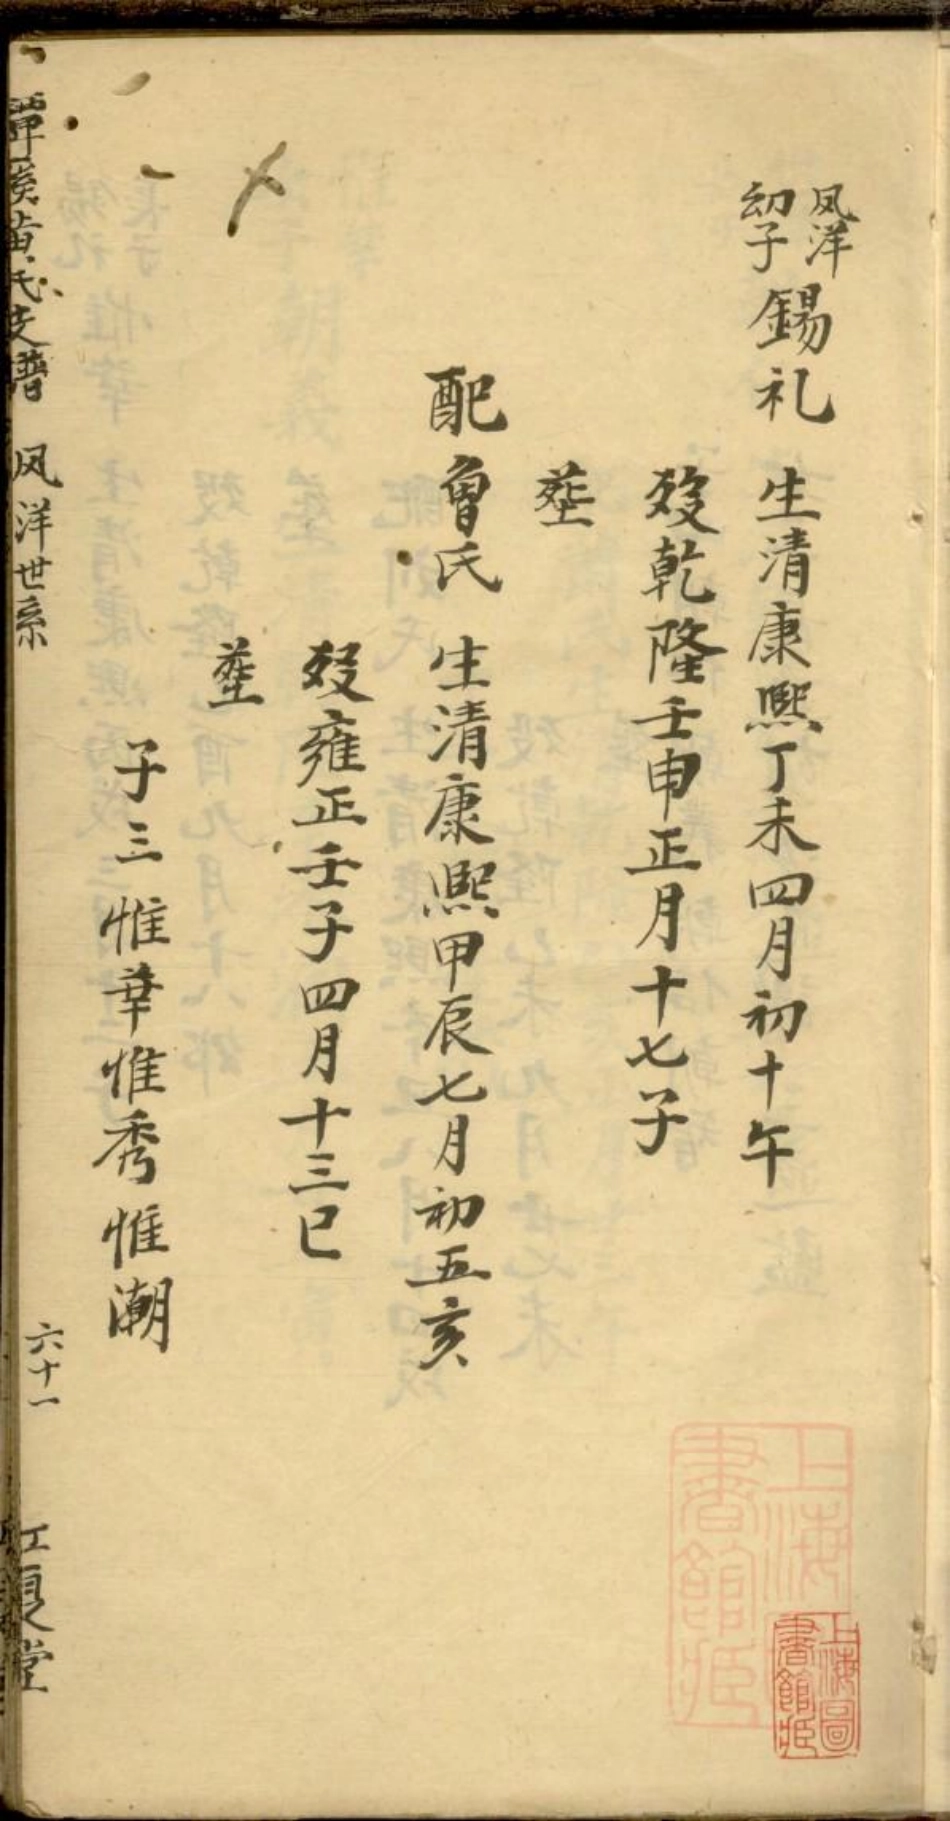 凤洋
幼子
錫礼 生清康熙丁未四月初十午
殁乾隆壬申正月十七子
塟
配魯氏 生清康熙甲辰七月初五亥
殁雍正壬子四月十三巳
塟
子三惟華惟秀惟潮
潭溪黄氏支譜 凤洋世系 六十一 江夏堂
上海圖
書館藏